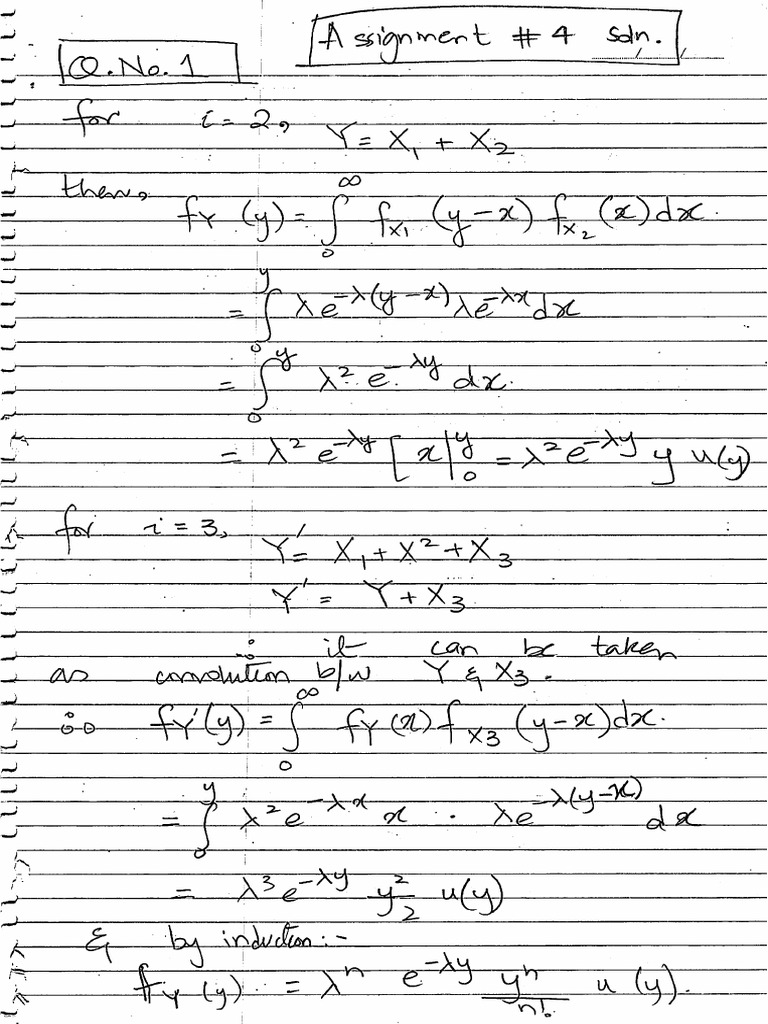 Assignment # 4 Soln.
Q.No.1
for i = 2, Y = X₁ + X₂
then, f_Y (y) = ∫₀^∞ f_X₁ (y-x) f_X₂ (x) dx.
= ∫₀^y λe^{-λ(y-x)} λe^{-λx} dx
= ∫₀^y λ² e^{-λy} dx.
= λ² e^{-λy} [x|₀^y = λ² e^{-λy} y u(y)
for i = 3, Y' = X₁ + X² + X₃
Y' = Y + X₃
∴ it can be taken
as convolution b/w Y & X₃.
∴ f_Y'(y) = ∫₀^∞ f_Y (x) f_X₃ (y-x) dx.
= ∫₀^y λ² e^{-λx} x . λe^{-λ(y-x)} dx
= λ³ e^{-λy} y²/2 u(y)
& by induction:-
f_Y (y) = λⁿ e^{-λy} yⁿ/n! u (y).